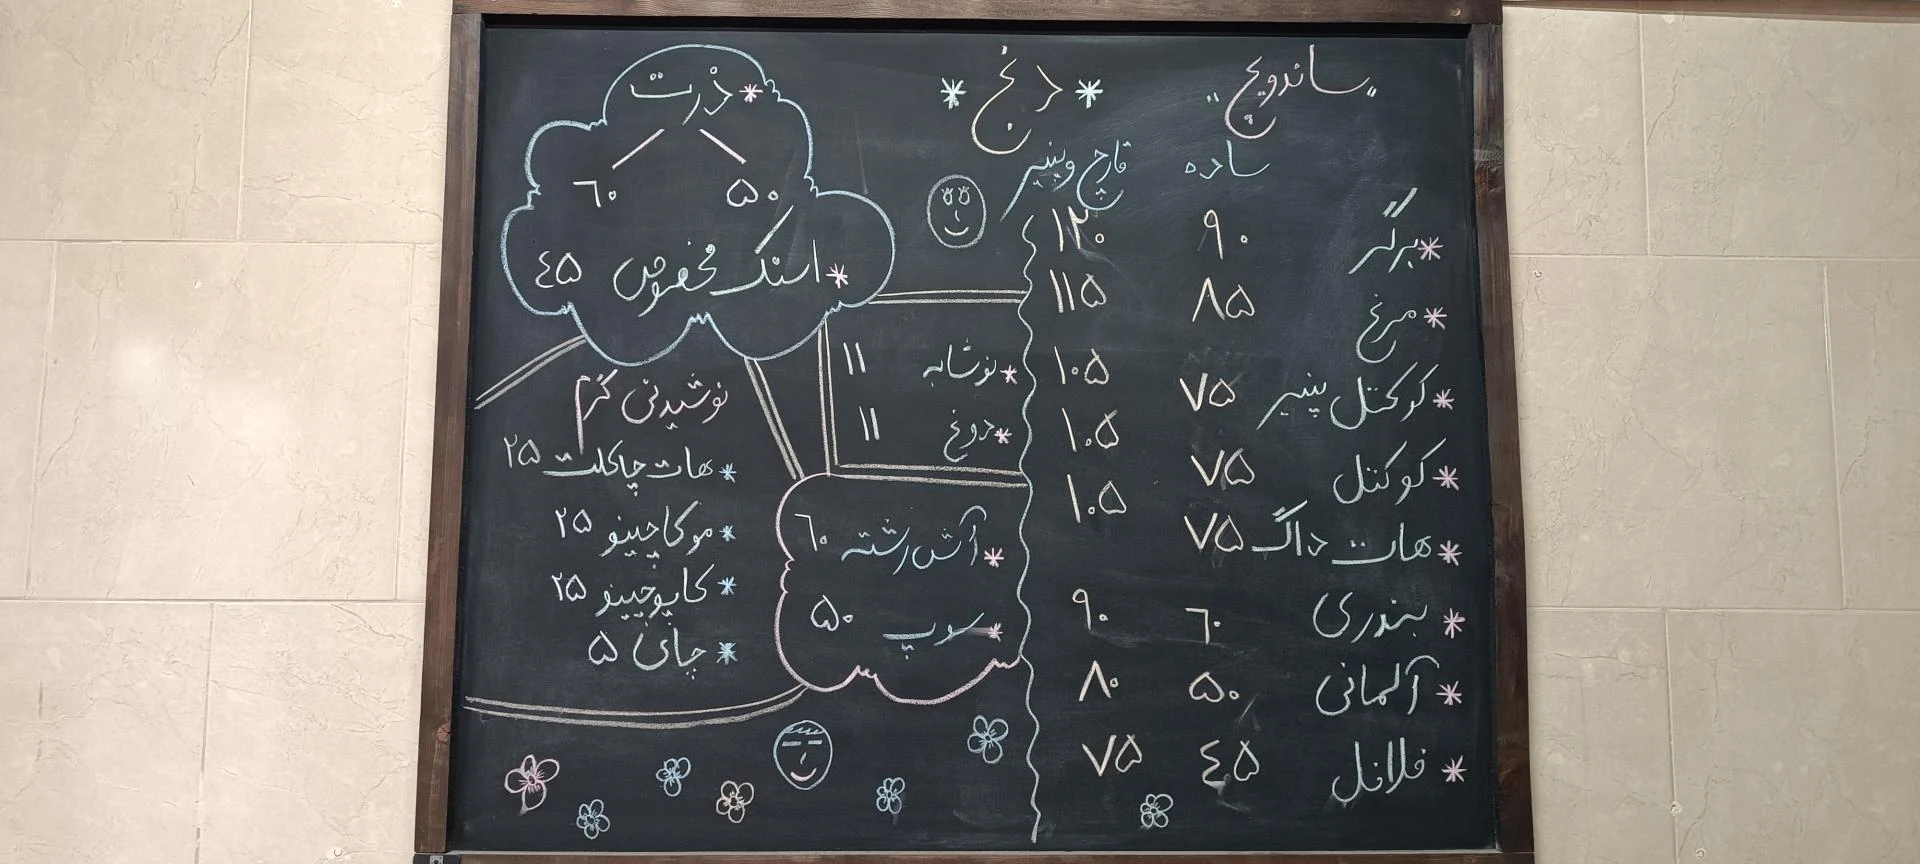 ساندویچ
ساده قارچ و پنیر
برگر ۹۰ ۱۲۰
مرغ ۸۵ ۱۱۵
کوکتل پنیر ۷۵ ۱۰۵
کوکتل ۷۵ ۱۰۵
هات داگ ۷۵ ۱۰۵
بندری ۶۰ ۹۰
آلمانی ۵۰ ۸۰
فلافل ۴۵ ۷۵
دنج
ذرت
۵۰ ۶۰
اسنک مخصوص ۴۵
نوشابه ۱۱
دوغ ۱۱
آش رشته ۶۰
سوپ ۵۰
نوشیدنی گرم
هات چاکلت ۲۵
موکاچینو ۲۵
کاپوچینو ۲۵
چای ۵